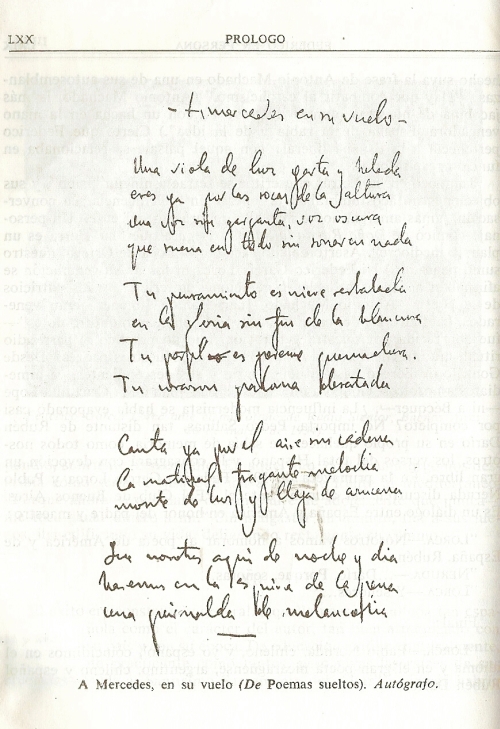 LXX
PROLOGO
- A Mercedes en su vuelo -
Una viola de luz yerta y helada
eres ya por las rocas de la altura
una voz sin garganta, voz oscura
que suena en todo sin sonar en nada
Tu pensamiento es nieve resbalada
en la gloria sin fin de la blancura
Tu perfil es perenne quemadura.
Tu corazon paloma desatada
Canta ya por el aire sin cadena
La matinal fragante melodia
monte de luz y llaga de azucena
Que nosotros aqui de noche y dia
haremos en la esquina de la pena
una guirnalda de melancolia
A Mercedes, en su vuelo (De Poemas sueltos). Autógrafo.